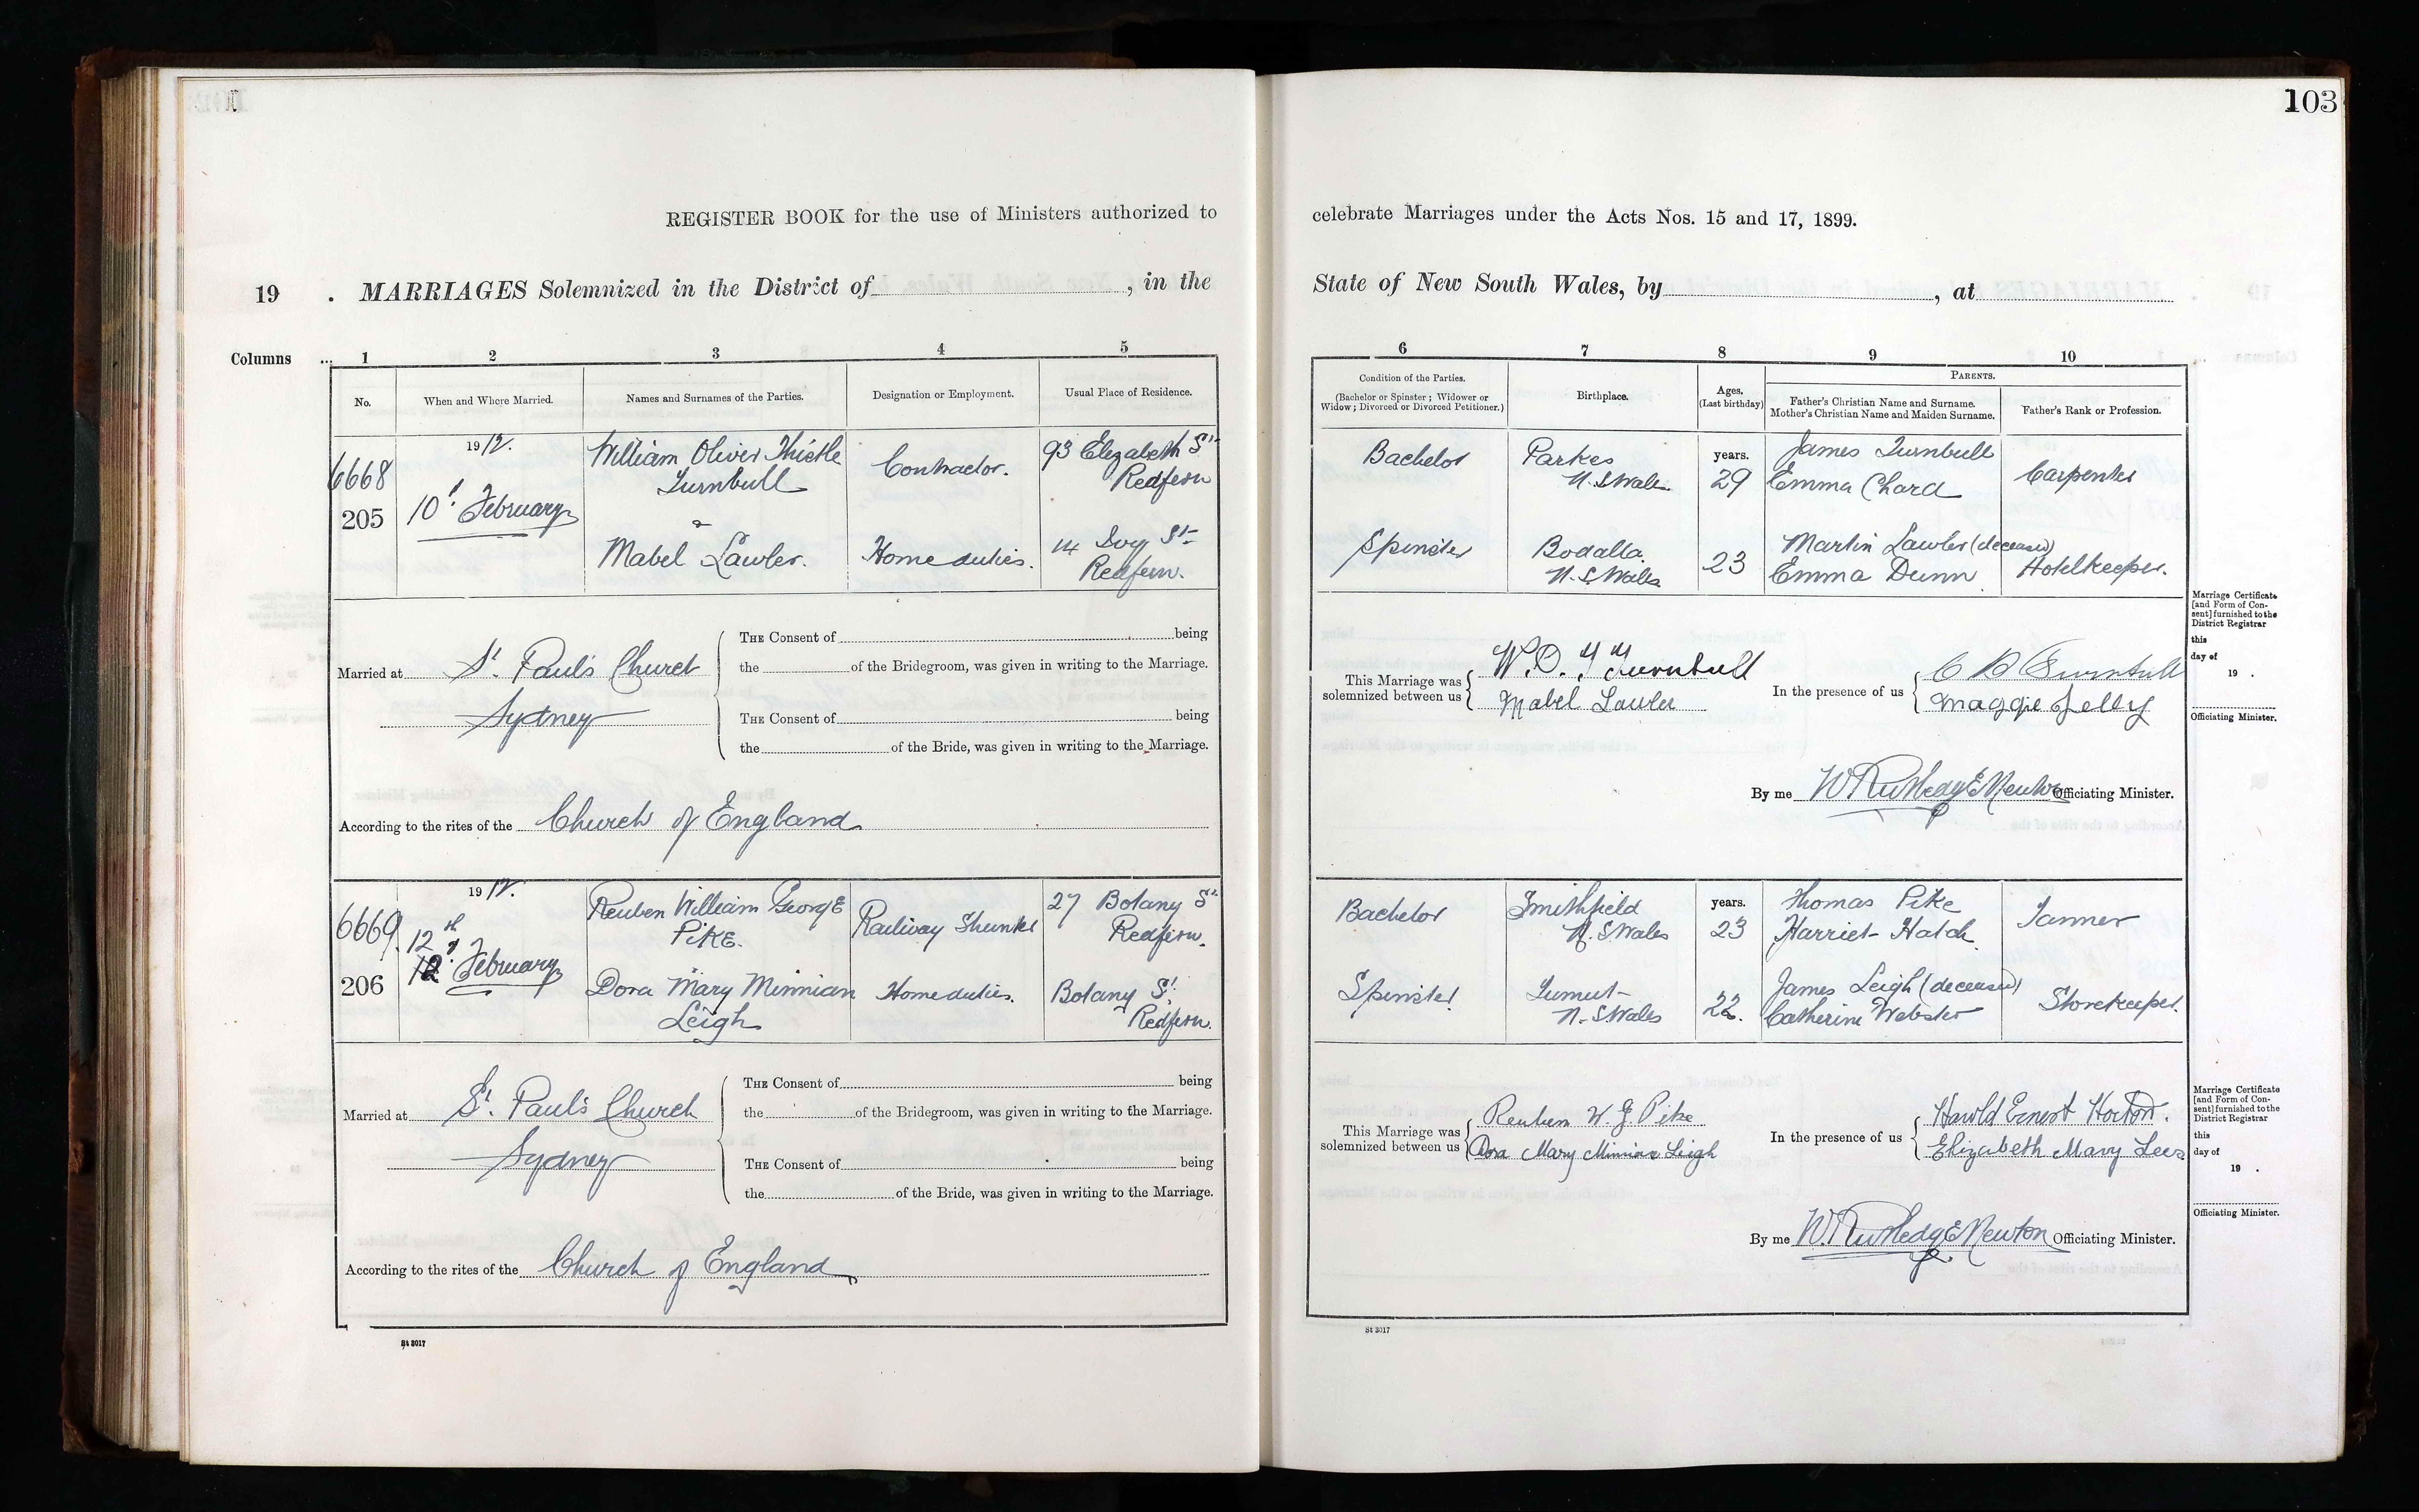 103
REGISTER BOOK for the use of Ministers authorized to celebrate Marriages under the Acts Nos. 15 and 17, 1899.
19 . MARRIAGES Solemnized in the District of , in the State of New South Wales, by , at
Columns ... 1 2 3 4 5 6 7 8 9 10
No.
When and Where Married.
Names and Surnames of the Parties.
Designation or Employment.
Usual Place of Residence.
Condition of the Parties.
(Bachelor or Spinster; Widower or
Widow; Divorced or Divorced Petitioner.)
Birthplace.
Ages.
(Last birthday)
PARENTS.
Father's Christian Name and Surname.
Mother's Christian Name and Maiden Surname.
Father's Rank or Profession.
6668
205
1912.
10th February
William Oliver Thistle
Turnbull
&
Mabel Lawler.
Contractor.
Home duties.
93 Elizabeth St
Redfern
14 Ivy St
Redfern.
Bachelor
Spinster
Parkes
N. S Wales
Bodalla
N. S. Wales
years.
29
23
James Turnbull
Emma Chard
Martin Lawler (deceased)
Emma Dunn
Carpenter
Hotelkeeper.
Married at St. Paul's Church
Sydney
THE Consent of being
the of the Bridegroom, was given in writing to the Marriage.
THE Consent of being
the of the Bride, was given in writing to the Marriage.
According to the rites of the Church of England
This Marriage was
solemnized between us
W. O. T. Turnbull
Mabel Lawler
In the presence of us
Turnbull
Maggie Jelly
By me W Rutledge Newton Officiating Minister.
Marriage Certificate
[and Form of Con-
sent] furnished to the
District Registrar
this
day of
19 .
Officiating Minister.
6669.
206
1912.
12th
12 February
Reuben William George
PIKE.
Dora Mary Minnian
Leigh
Railway Shunter
Home duties.
27 Botany St
Redfern.
Botany St.
Redfern.
Bachelor
Spinster
Smithfield
N. S Wales
Tumut
N. S Wales
years.
23
22.
Thomas Pike
Harriet Hatch
James Leigh (deceased)
Catherine Webster
Tanner
Storekeeper.
Married at St. Paul's Church
Sydney
THE Consent of being
the of the Bridegroom, was given in writing to the Marriage.
THE Consent of being
the of the Bride, was given in writing to the Marriage.
According to the rites of the Church of England
This Marriage was
solemnized between us
Reuben W. G. Pike
Dora Mary Minnian Leigh
In the presence of us
Harold Ernest Horton.
Elizabeth Mary Lees
By me W. Rutledge Newton Officiating Minister.
Marriage Certificate
[and Form of Con-
sent] furnished to the
District Registrar
this
day of
19 .
Officiating Minister.
St 3017
St 3017